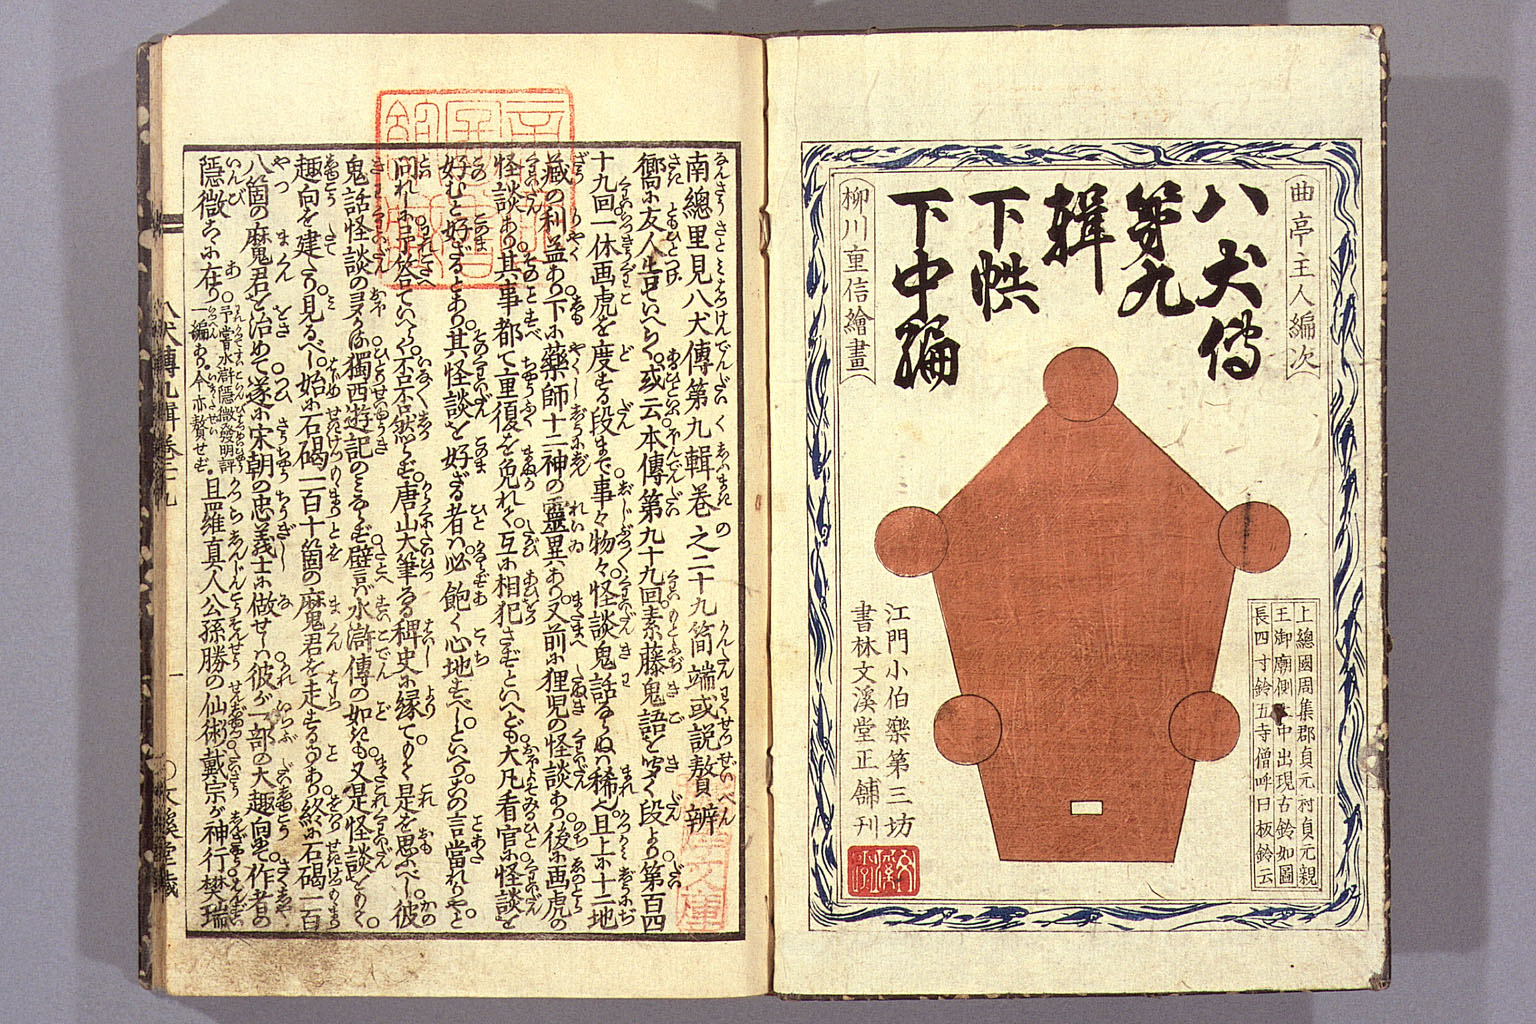 曲亭主人編次
八犬傳
第九
輯
下帙
下中編
柳川重信繪畫
上總國周集郡貞元村貞元親
王御廟側
中出現古鈴如圖
長四寸鈴五寺僧呼曰板鈴云
江門小伯樂第三坊
書林文溪堂正舖刊
南總里見八犬傳第九輯卷之二十九簡端或説贅辨
嚮に友人告ていへらく。或云本傳第九十九回素藤鬼語を聞く段より。第百四
十九回一休画虎を度する段まで事々物々怪談鬼話ならぬは稀也。且上に十二地
藏の利益あり。下に藥師十二神の靈異あり。又前に狸児の怪談あり。後に画虎の
怪談あり。其事都て重復を免れず。互に相犯さずといへども。大凡看官に怪談を
好むと好ざるとあり。其怪談を好ざる者は必飽く心地すべしといへり。この言當れりやと
問れしに予答ていへらく。否。否然らず。唐山大筆なる稗史に縁てもて是を思ふべし。彼
鬼話怪談の多かるは獨西遊記のみならず。譬ば水滸傳の如きも。又是怪談をもて
趣向を建たり。見るべし。始に石碣一百十箇の魔君を走らする事あり。終に石碣一百
八箇の魔君を治めて。遂に宋朝の忠義士に做せしは。彼が一部の大趣向也。作者の
隱微こゝに在り。
予嘗水滸隱微發明評
一編あり。今亦贅せず。
且羅真人公孫勝の仙術。戴宗が神行。樊瑞
八犬傳九輯卷二十九
一
文溪堂藏